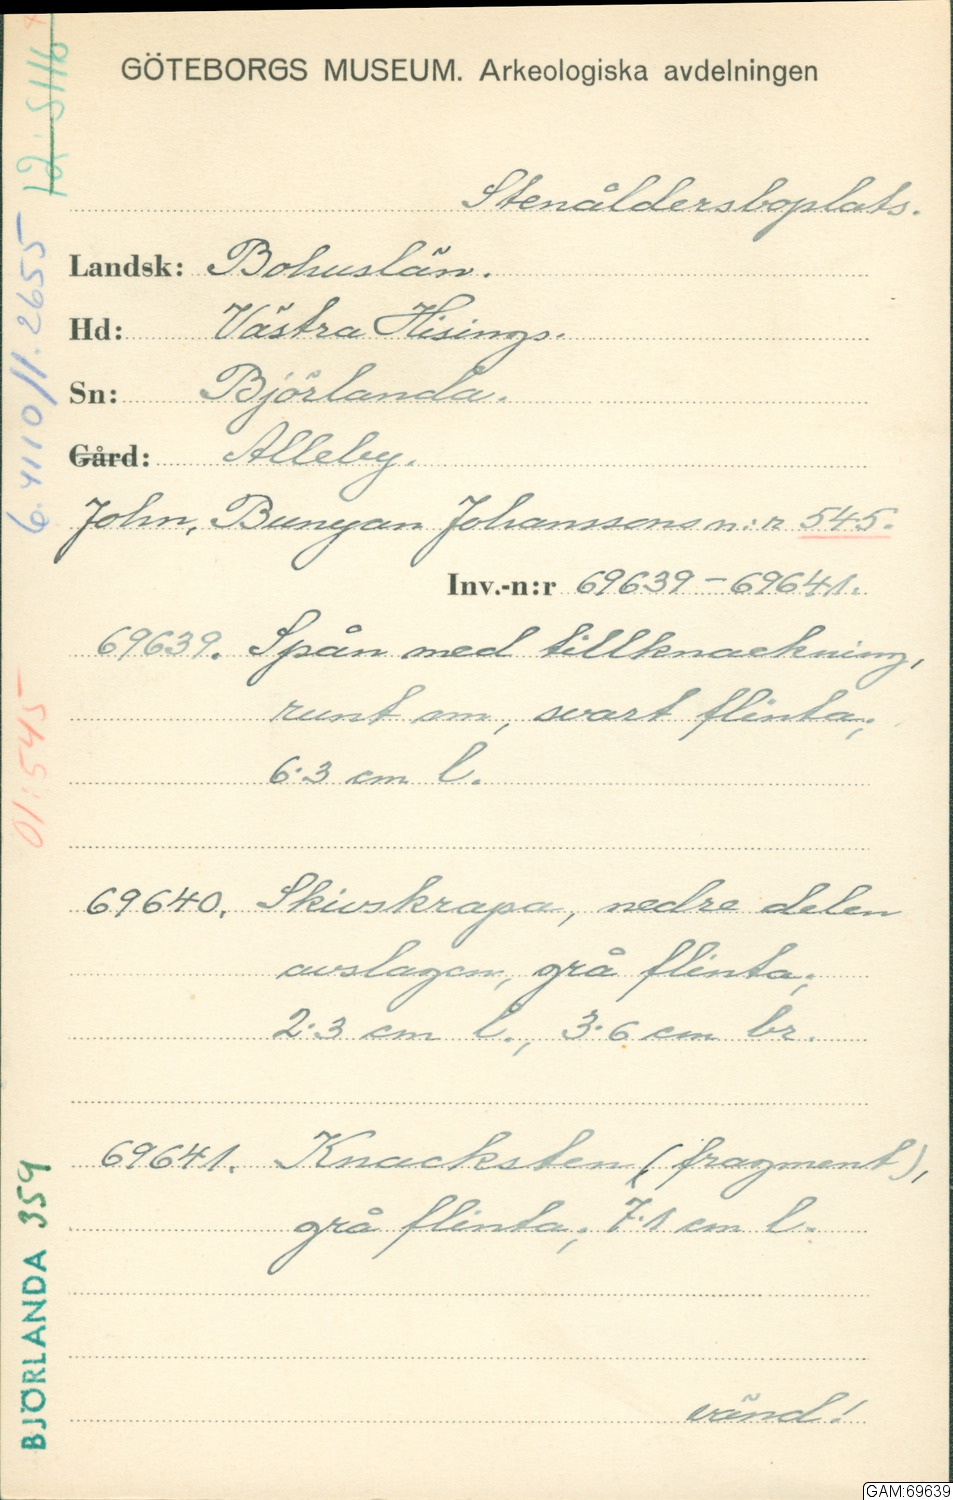 GÖTEBORGS MUSEUM. Arkeologiska avdelningen
Stenåldersboplats.
Landsk: Bohuslän.
Hd: Västra Hisings.
Sn: Björlanda.
Gård: Alleby.
John, Bunyan Johanssons n:r 545.
Inv.-n:r 69639-69641.
69639. Spån med tillknackning,
runt om, svart flinta;
6·3 cm l.
69640. Skivskrapa, nedre delen
avslagen, grå flinta;
2·3 cm l., 3·6 cm br.
69641. Knacksten (fragment),
grå flinta; 7·1 cm l.
vänd!
6.4110/1.2655
01:545
BJÖRLANDA 359
GAM:69639